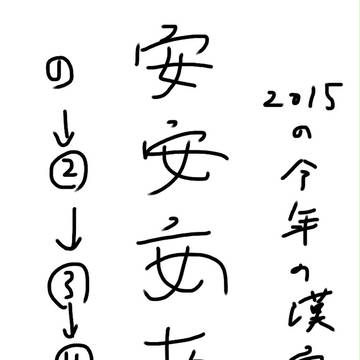 2015の今年の漢
安安
①↓②↓③↓④